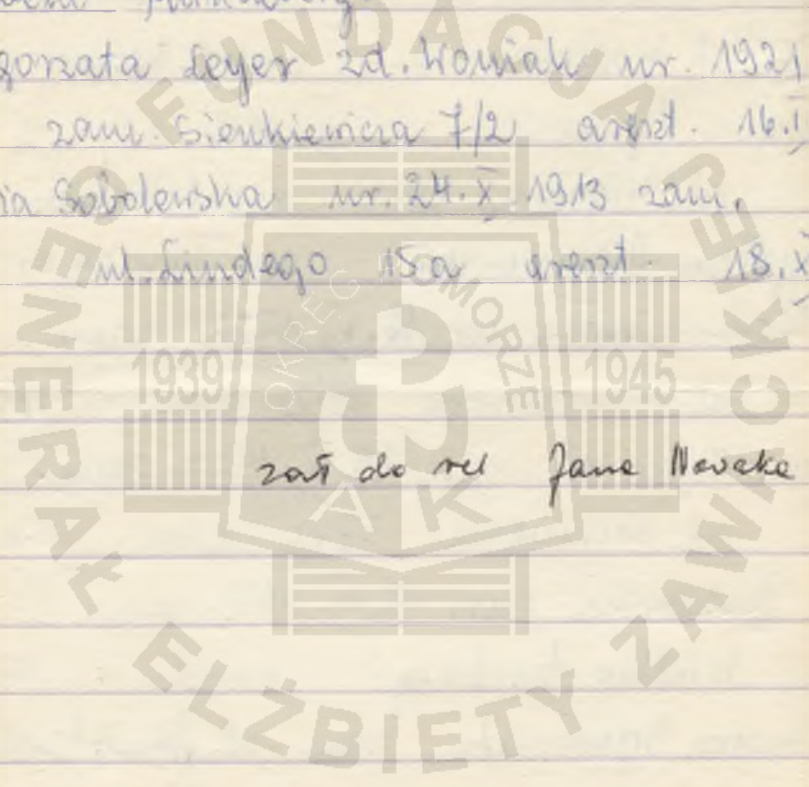 gorzata Leyer zd. Woźniak ur. 1921
zam. Sienkiewicza 7/2 areszt. 16.I
ia Sobolewska ur. 24.X 1913 zam.
ul. Lindego 15a areszt. 18.X
zał do rel Jana Nowaka
FUNDACJA GENERAŁ ELŻBIETY ZAWACKIEJ
OKRĘG POMORZE
1939 1945
AK